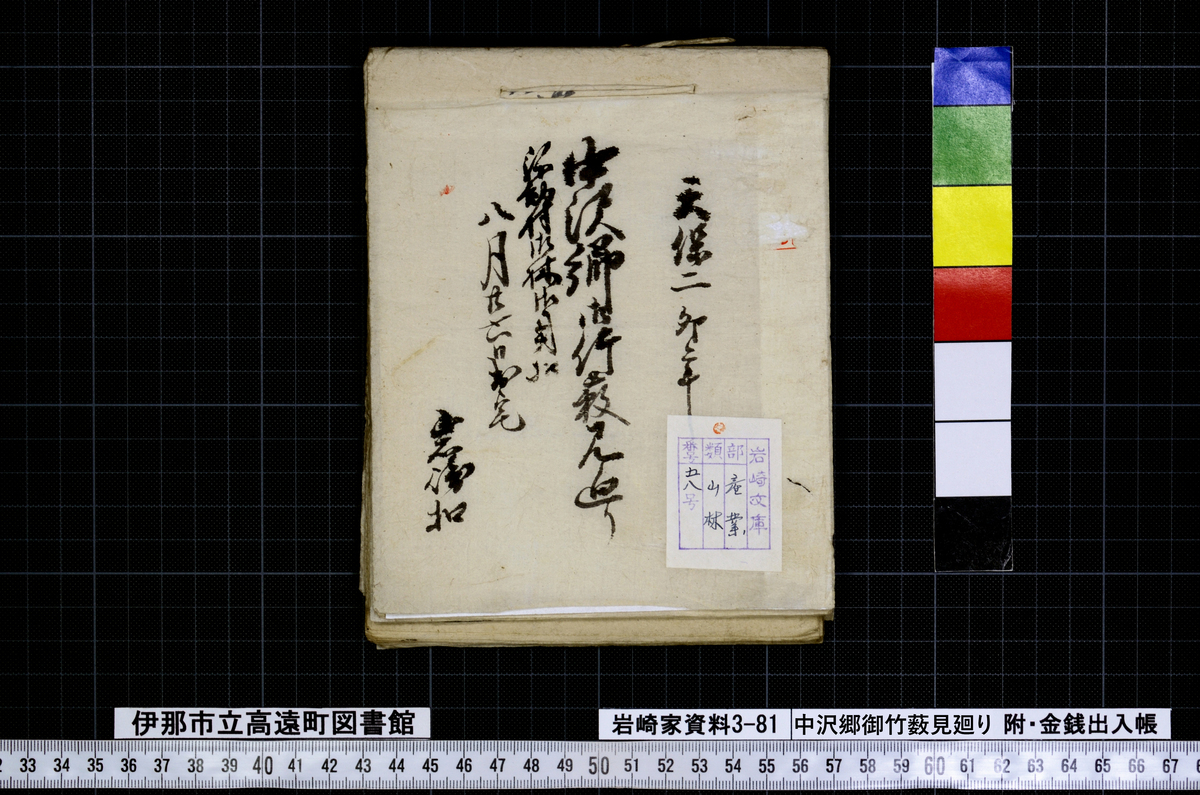 天保二卯年
中沢郷御竹薮見廻り
御林御
八月廿六日出宅
扣
岩崎文庫
部 産業
類 山林
番号 五八号
伊那市立高遠町図書館
岩崎家資料3-81
中沢郷御竹薮見廻り 附・金銭出入帳
33 34 35 36 37 38 39 40 41 42 43 44 45 46 47 48 49 50 51 52 53 54 55 56 57 58 59 60 61 62 63 64 65 66 67